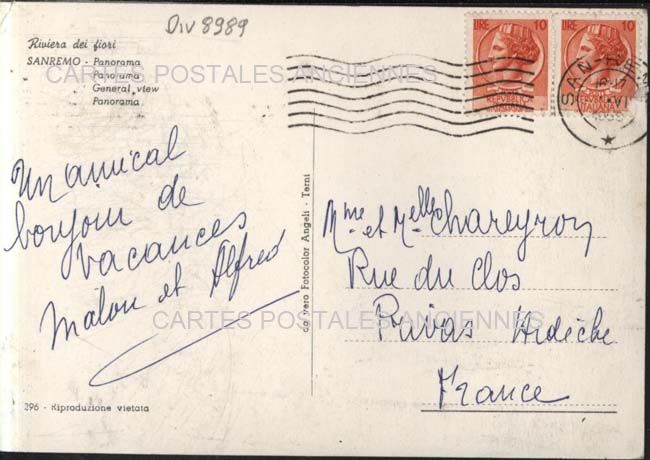 Div 8989
Riviera dei fiori
SANREMO - Panorama
Panorama
General view
Panorama
CARTES POSTALES ANCIENNES
LIRE 10
LIRE 10
REPVBBLICA
ITALIANA
REPVBBLICA
ITALIANA
Un amical
bonjour de
vacances
Malou et Alfred
da vero Fotocolor Angeli - Terni
Mme et Melle Chareyron
Rue du Clos
Privas Ardèche
France
CARTES POSTALES ANCIENNES
296 - Riproduzione vietata